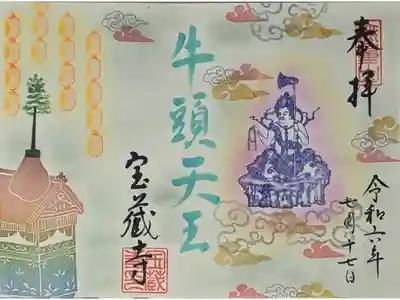 奉拝
令和六年
七月十七日
牛頭天王
宝蔵寺